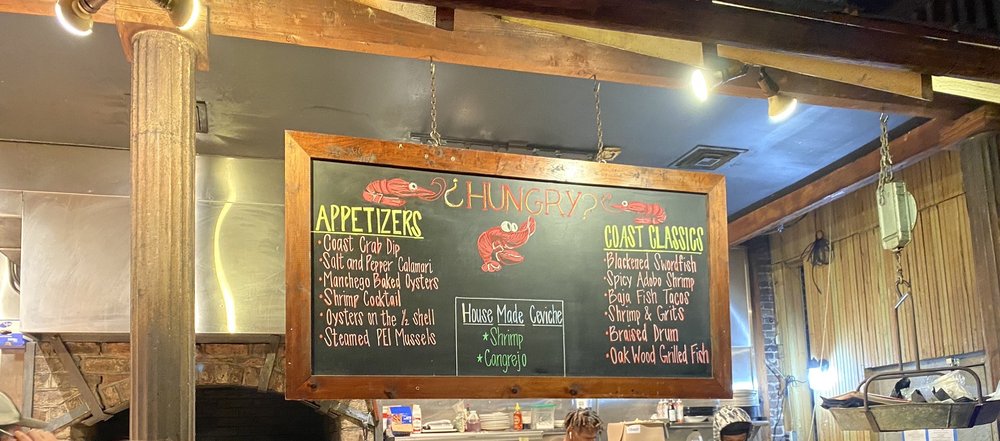 ¿HUNGRY?
APPETIZERS
•Coast Crab Dip
•Salt and Pepper Calamari
•Manchego Baked Oysters
•Shrimp Cocktail
•Oysters on the ½ shell
•Steamed PEI Mussels
House Made Ceviche
★Shrimp
★Cangrejo
COAST CLASSICS
•Blackened Swordfish
•Spicy Adobo Shrimp
•Baja Fish Tacos
•Shrimp & Grits
•Braised Drum
•Oak Wood Grilled Fish